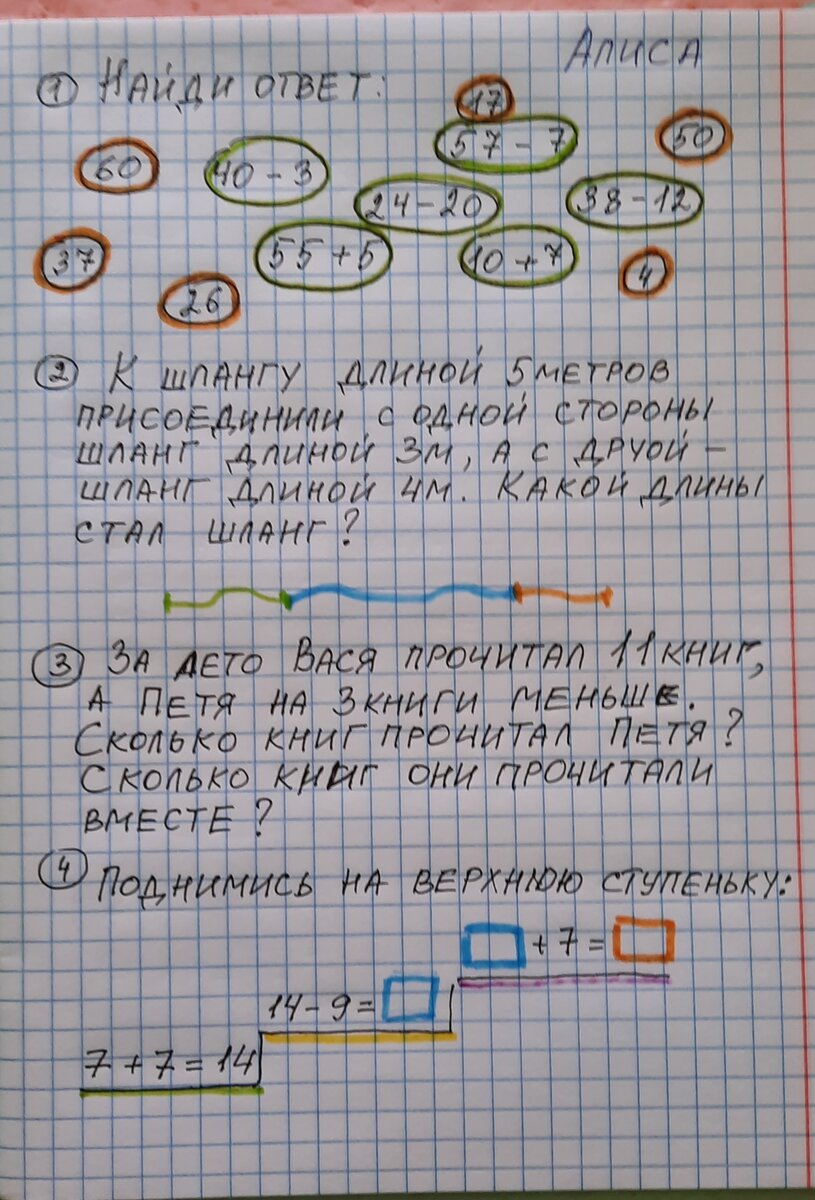 Алиса
① Найди ответ:
17
57 - 7
50
60
40 - 3
24 - 20
38 - 12
37
55 + 5
10 + 7
4
26
② К шлангу длиной 5 метров
присоединили с одной стороны
шланг длиной 3м, а с друой -
шланг длиной 4м. Какой длины
стал шланг?
③ За лето Вася прочитал 11 книг,
а Петя на 3 книги меньше.
Сколько книг прочитал Петя?
Сколько книг они прочитали
вместе?
④ Поднимись на верхнюю ступеньку:
+ 7 =
14 - 9 =
7 + 7 = 14